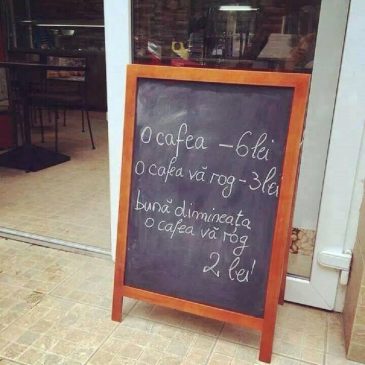 o cafea - 6 lei
o cafea vă rog - 3 lei
bună dimineața
o cafea vă rog
2 lei